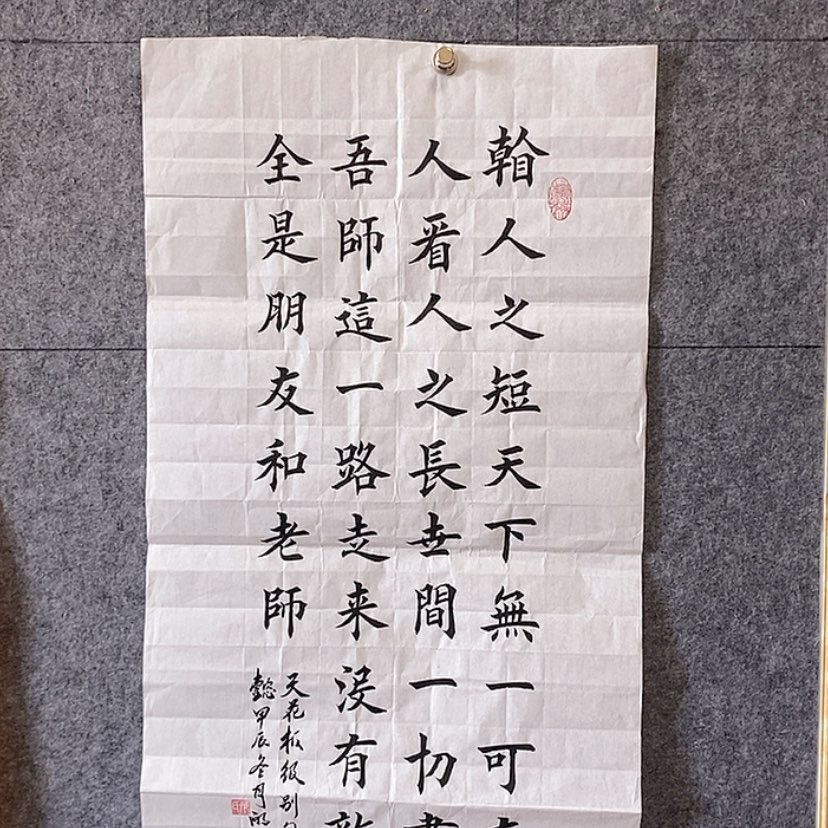 䩞人之短天下無一可
人看人之長世間一切盡
吾師這一路走来沒有敵
全是朋友和老師
天花板级别
懿甲辰冬月